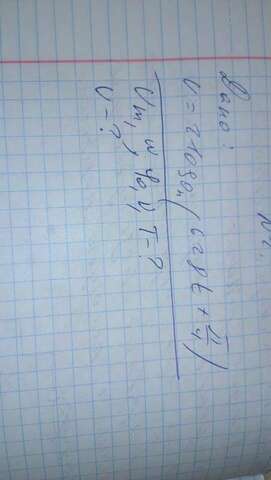 Дано:
U = 210 sin (628t + π/4)
Um, ω, φ₀, ν, T - ?
U - ?